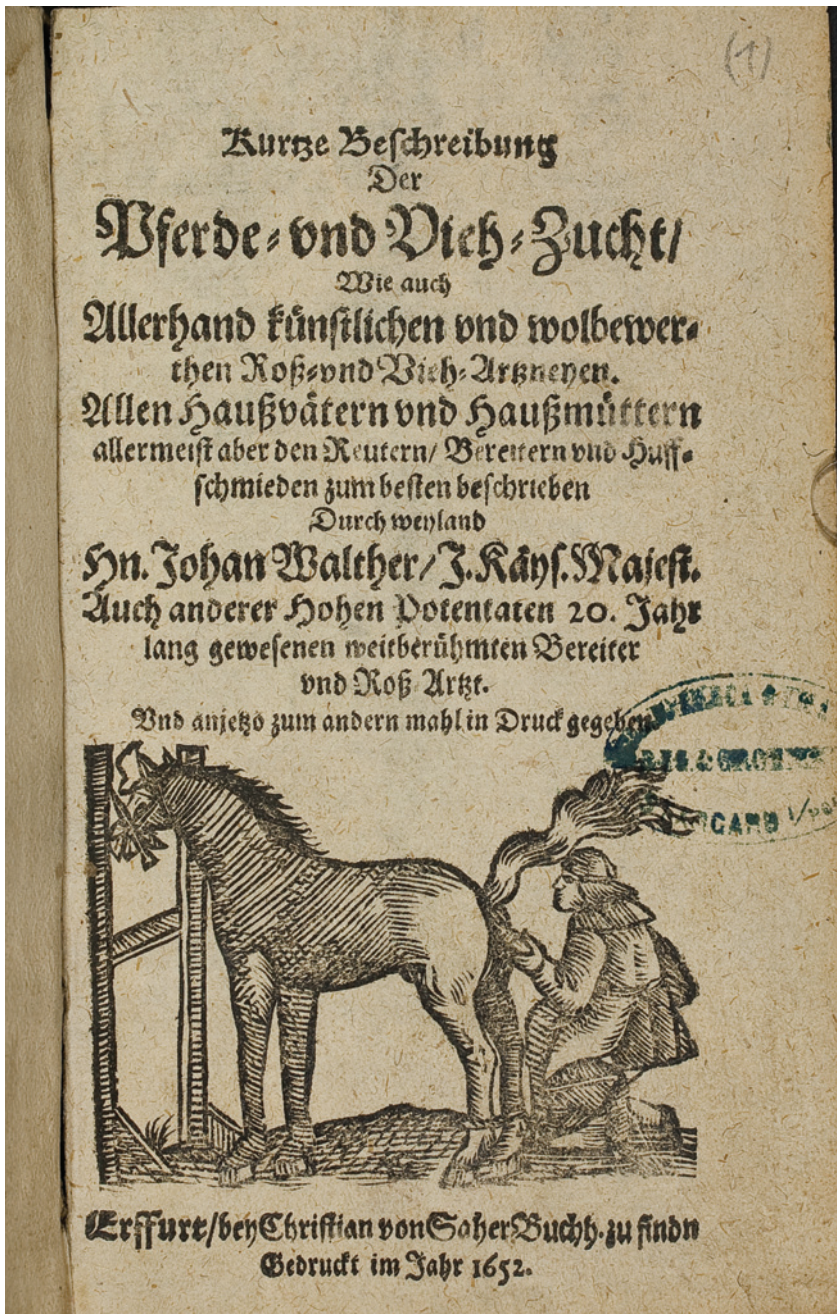 (1)
Kurtze Beschreibung
Der
Pferde- vnd Vieh-Zucht/
Wie auch
Allerhand künstlichen vnd wolbewer-
then Roß-vnd Vieh-Artzneyen.
Allen Haußvätern vnd Haußmüttern
allermeist aber den Reutern/ Bereitern vnd Huff-
schmieden zum besten beschrieben
Durch weyland
Hn. Johan Walther/ J. Käys. Majest.
Auch anderer Hohen Potentaten 20. Jahr
lang gewesenen weitberühmten Bereiter
vnd Roß-Artzt.
Vnd anjetzo zum andern mahl in Druck gegeben
Erffurt/ bey Christian von Saher Buchh. zu findn
Gedruckt im Jahr 1652.